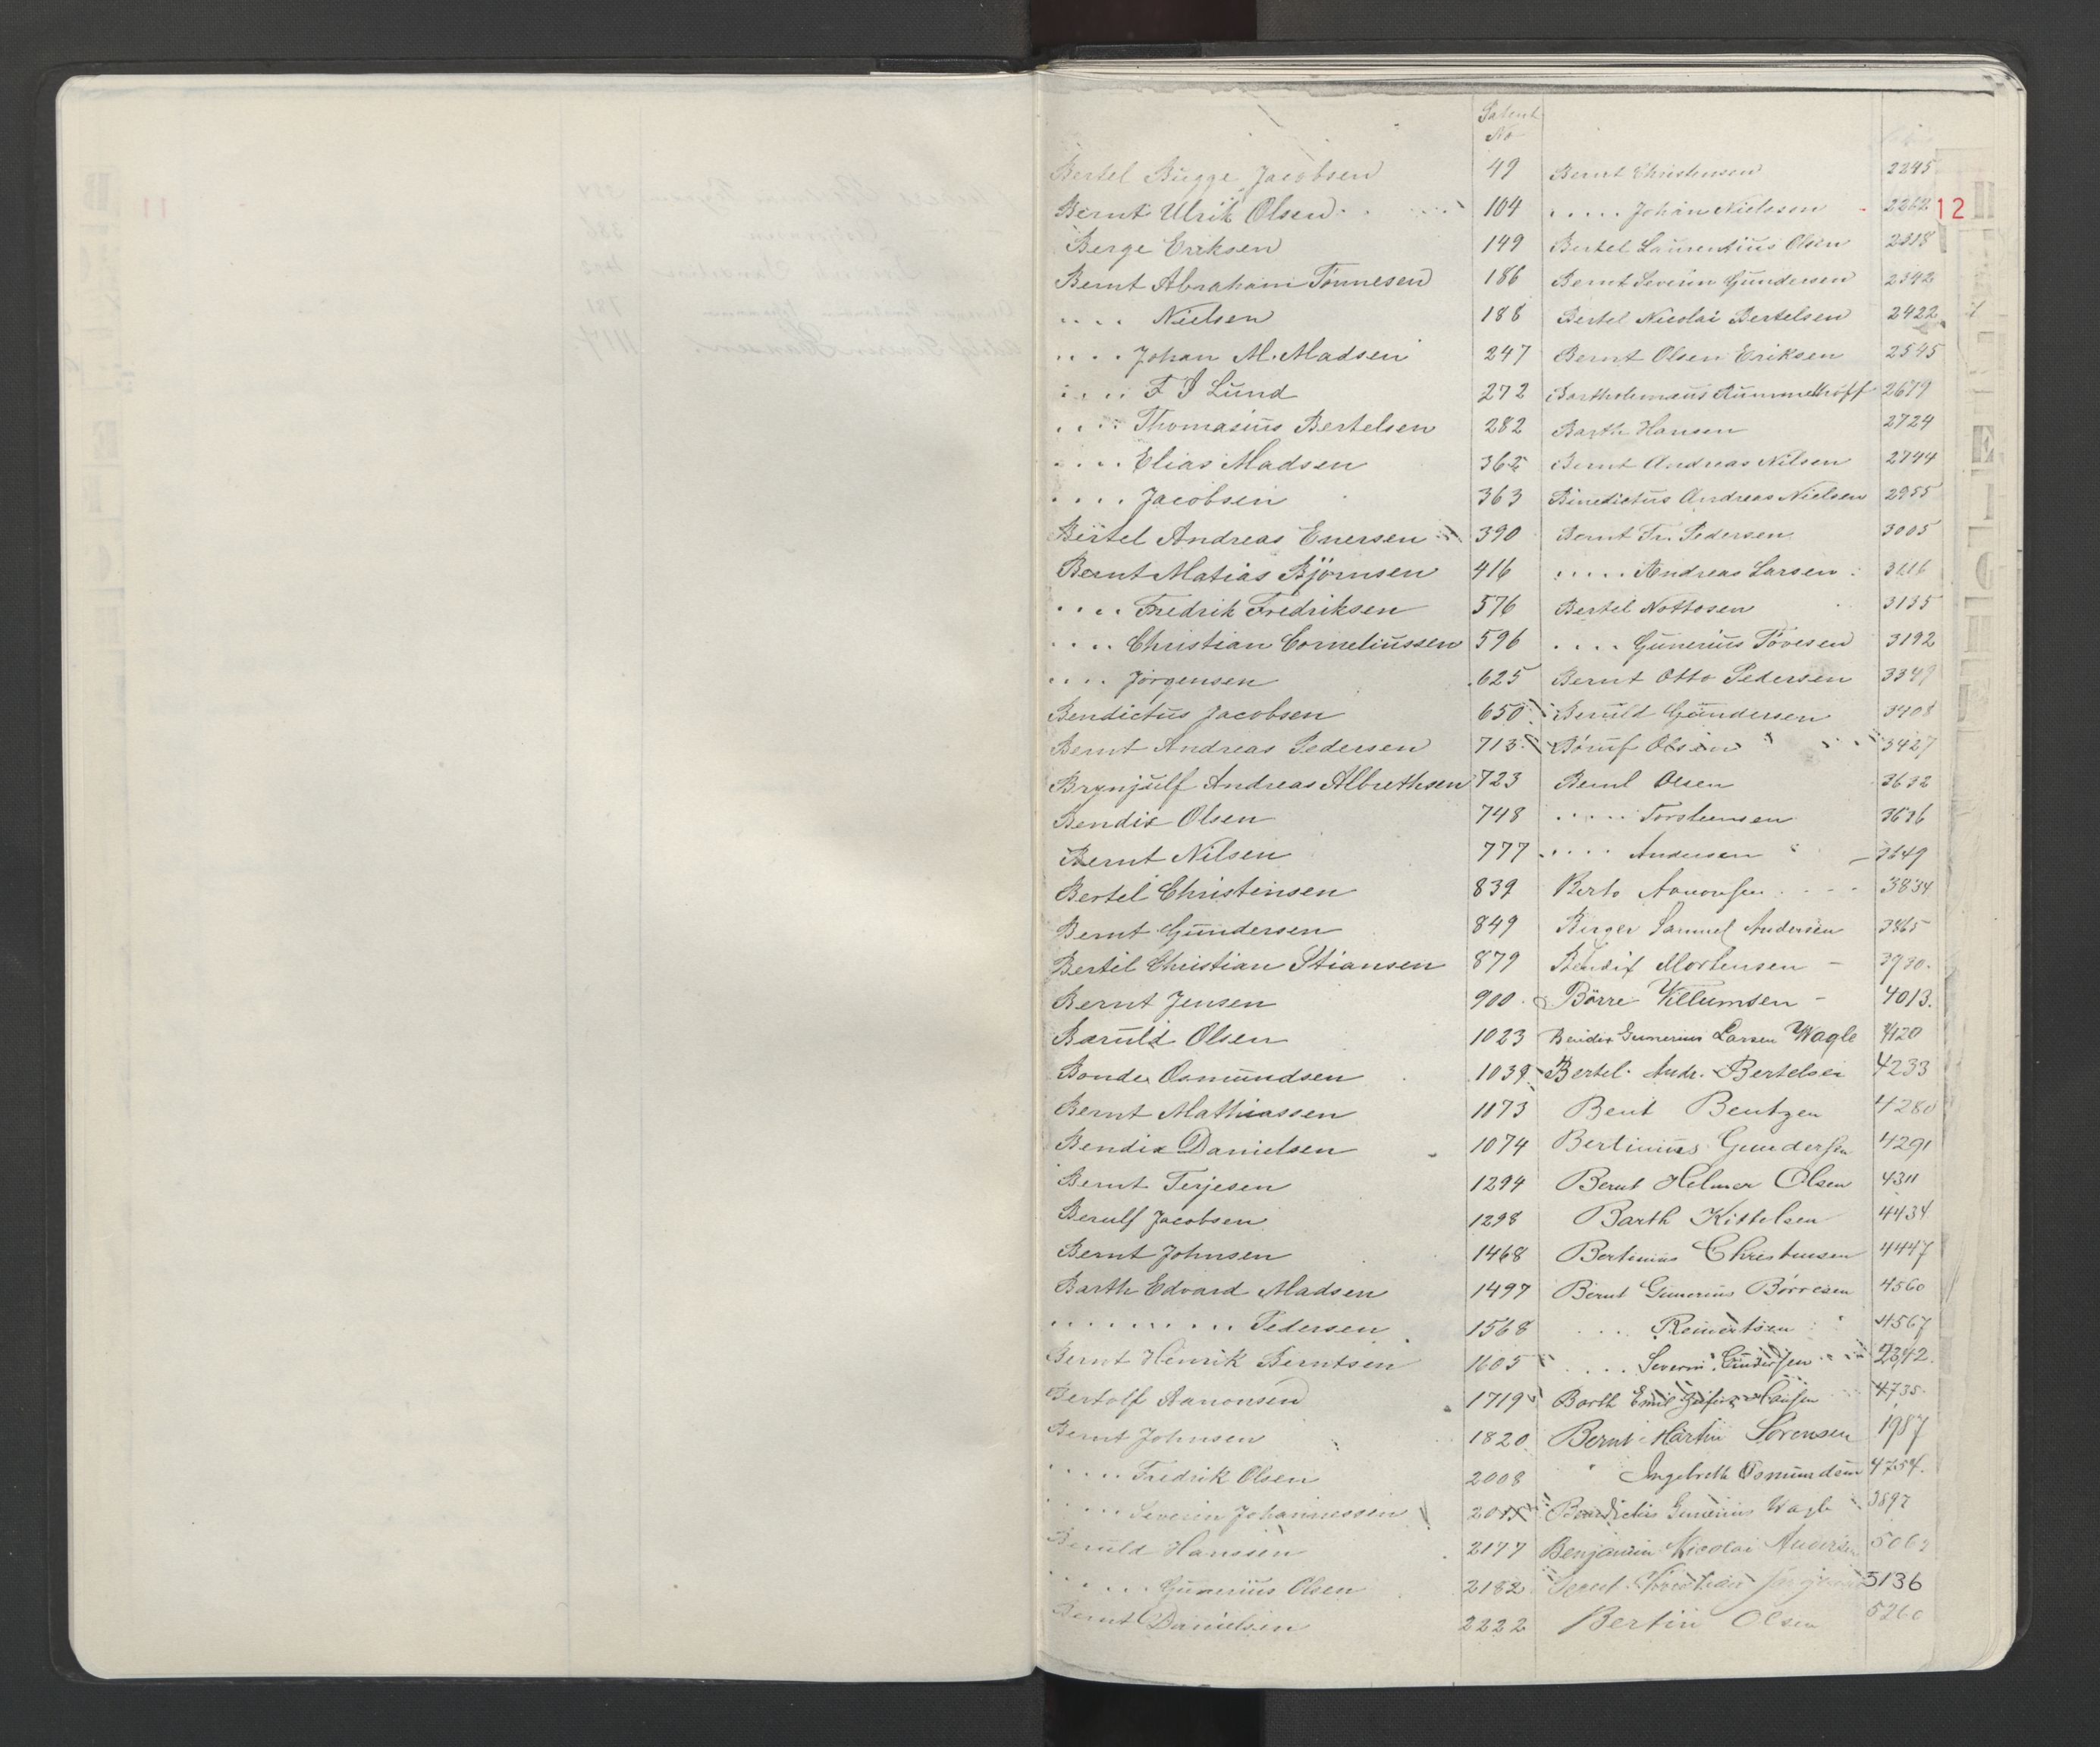 Patent
No
Bertel Bugge Jacobsen 49
Bernt Ulrik Olsen 104
Berge Eriksen 149
Bernt Abraham Tönnesen 186
.... Nielsen 188
.... Johan M. Madsen 247
.... F J Lund 272
.... Thomasius Bertelsen 282
.... Elias Madsen 362
.... Jacobsen 363
Bertel Andreas Enersen 390
Bernt Matias Björnsen 416
.... Fredrik Fredriksen 576
.... Christian Corneliussen 596
.... Jörgensen 625
Bendictus Jacobsen 650
Bernt Andreas Pedersen 713
Brynjulf Andreas Albrethsen 723
Bendix Olsen 748
Bernt Nilsen 777
Bertel Christensen 839
Bernt Gundersen 849
Bertil Christian Stiansen 879
Bernt Jensen 900
Baruld Olsen 1023
Bonde Osmundsen 1039
Bernt Mathiassen 1173
Bendix Danielsen 1074
Bernt Terjesen 1294
Berulf Jacobsen 1298
Bernt Johnsen 1468
Barth Edvard Madsen 1497
......... Pedersen 1568
Bernt Henrik Berntsen 1605
Bertolf Aanonsen 1719
Bernt Johnsen 1820
..... Fredrik Olsen 2008
..... Severin Johannessen
Beruld Hansen 2177
..... Gunerius Olsen 2182
Bernt Danielsen 2222
Bernt Christensen 2245
..... Johan Nielssen 2262
Bertel Laurentius Olsen 2318
Bernt Severin Gundersen 2342
Bertel Nicolai Bertelsen 2422
Bernt Olsen Eriksen 2545
Bartholomæus Rummelhoff 2679
Barth Hansen 2724
Bernt Andreas Nilsen 2744
Binedictus Andreas Nielsen 2955
Bernt Fr. Pedersen 3005
..... Andreas Larsen 3116
Bertel Nottosen 3135
.... Gunerius Tövesen 3192
Bernt Otto Pedersen 3349
Beruld Gundersen 3408
Böruf Olsen 3427
Bernt Olsen 3632
..... Torsteensen 3636
.... Andersen 3649
Berto Aanonsen 3834
Birger Samuel Andersen 3865
Bendix Mortensen 3930.
Börre Villumsen 4013.
Bendix Gunerius Larsen Wagle 4120
Bertel Andr. Bertelsen 4233
Bent Bentzen 4280
Bertinius Gundersen 4291
Bernt Helmer Olsen 4311
Barth Kittelsen 4434
Bertinius Christensen 4447
Bernt Gunerius Börresen 4560
.... Reinertsen 4567
.... Severin Gundersen 2342.
Barth Emil Hansen 4735.
Bernt Martin Sörensen 1987
" Ingebreth Osmundsen 4754.
Benedictus Gunerius Wagle 3897
Benjamin Nicolai Andersen
Bernt Christian 5136
Bertin Olsen 5260
12
11